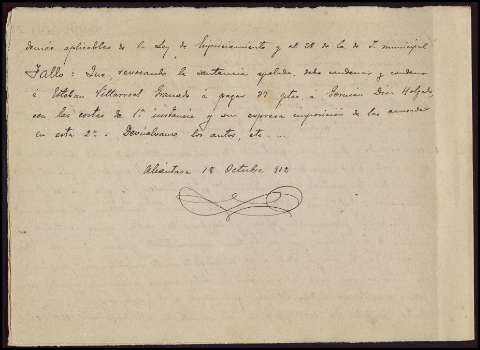 demás aplicables de la Ley de Enjuiciamiento y el 28 de la de J. municipal
Fallo: Que, revocando la sentencia apelada, debo condenar y condeno
á Esteban Villarroel Granado á pagar 87 ptas á Germán Díaz Holgado
con las costas de 1ª instancia y sin expresa imposición de las causadas
en esta 2ª. Devuélvanse los autos, etc. ...
Alcántara 18 Octubre 912